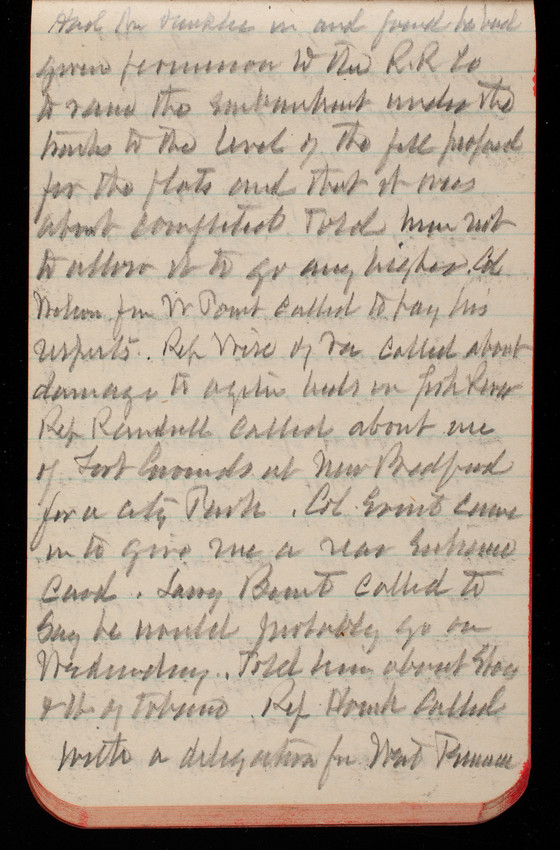 Had in and found he had
given permission to the R.R Co
to raise the Embankment under the
tracks to the level of the fill proposed
for the flats and that it was
about completed. Told him not
to allow it to go any higher. Col
Wilson fm W Point called to pay his
respects. Rep Wise of Va called about
damage to oyster beds in
Rep Randall called about use
of Fort Grounds at New Bedford
for a city Park. Col Ernst came
in to give me a rear Entrance
Card. called to
Say he would probably go on
Wednesday. Told him about
of tobacco. Rep Houk called
with a delegation fm West